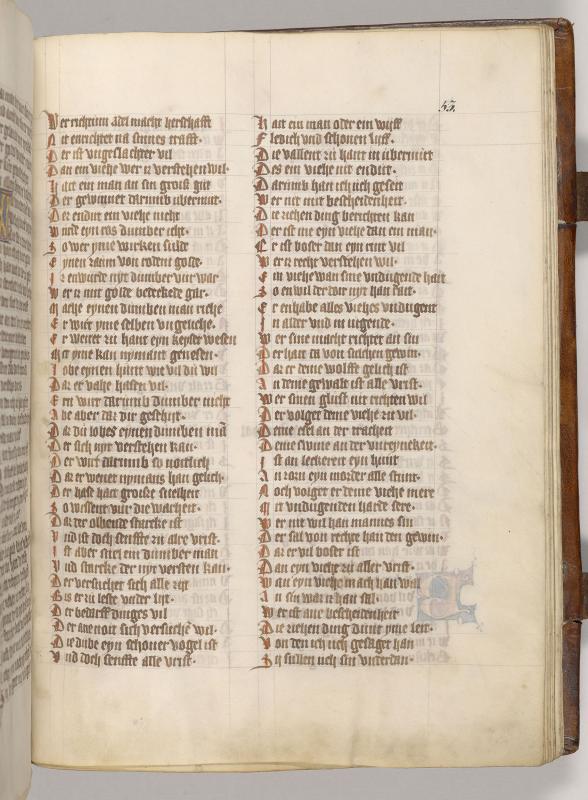 53.
Wer richtum adel macht herschafft
Nit enrichtet na sinnes crafft
Der ist vngeslachter vil
Dan ein viehe wer iz verstehen wil.
Hait ein man an sin groiß gut
Der gewinnet darumb vbermut.
Der endut ein viehe nicht
Wude eyn ros dumber icht.
So wer yme wirken sulde
Eynen zaum von rodem golde.
Iz enwurde nyt dumber vur war
Wer iz mit golde bedekede gar.
Mache eynen dumben man riche
Er wirt yme selben vngeliche.
Er wenet zu hant eyn keyser wesen
Mit yme kan nymant genesen.
Lobe eynen hunt wie vil du wil
Daz er vahe hasen vil.
Ern wirt darumb dumber nicht
Abe aber daz dir geschiht.
Daz du lobes eynen dumben man
Der sich nyt verstehen kan.
Der wirt darumb so notlich
Daz er wenet nymans han gelich.
Der hase hait groiße snelheit
So wissent vur die warheit.
Daz der olbende starcke ist
Vnd ist doch senffte zu alre vrist.
Ist aber snel ein dumber man
Vnd starcke der nyt versten kan.
Der versuchet sich alle zijt
Bis er zu leste vnder lijt.
Der bedarff dinges vil
Der ane noit sich versuchen wil.
Die dube eyn schoner vogel ist
Vnd doch senffte alle vrist.
Hait ein man oder ein wijff
Fledich vnd schonen lijff.
Die vallent zu hant in vbermut
Des ein viehe nit endut.
Darumb han ich uch geseit
Wer nit mit bescheidenheit.
Die ziehen ding berichten kan
Der ist me eyn viehe dan ein man
Er ist boser dan eyn rint vil
Wer iz recht verstehen wil.
Ein viehe wan sine vndugende hait
So en wil der doir nyt han rait.
Er enhabe alles viehes vndugent
In alder vnd in iugende.
Wer sine macht richtet an sin
Der hait da von sulchen gewin.
Daz er deme wolffe gelich ist
An deme gewalt ist alle vrist.
Wer sinen glust nit richten wil
Der volget deme viehe zu vil.
Deme esel an der tracheit
Deme swine an der vnreynekeit.
Ist an leckereit eyn hunt
An zorn eyn morder alle stunt.
Noch volget er deme viehe mere
Mit vndugenden harde sere.
Wer nit wil han mannes sin
Der sal von rechte han den gewin.
Daz er vil boser ist
Dan eyn viehe zu aller vrist.
Wan eyn viehe mach han wal
An sin waz iz han sal.
Wer ist ane bescheidenheit
Die ziehen ding dunt yme leit.
Von den ich uch gesaget han
Sij sullen uch sin vnderdan.